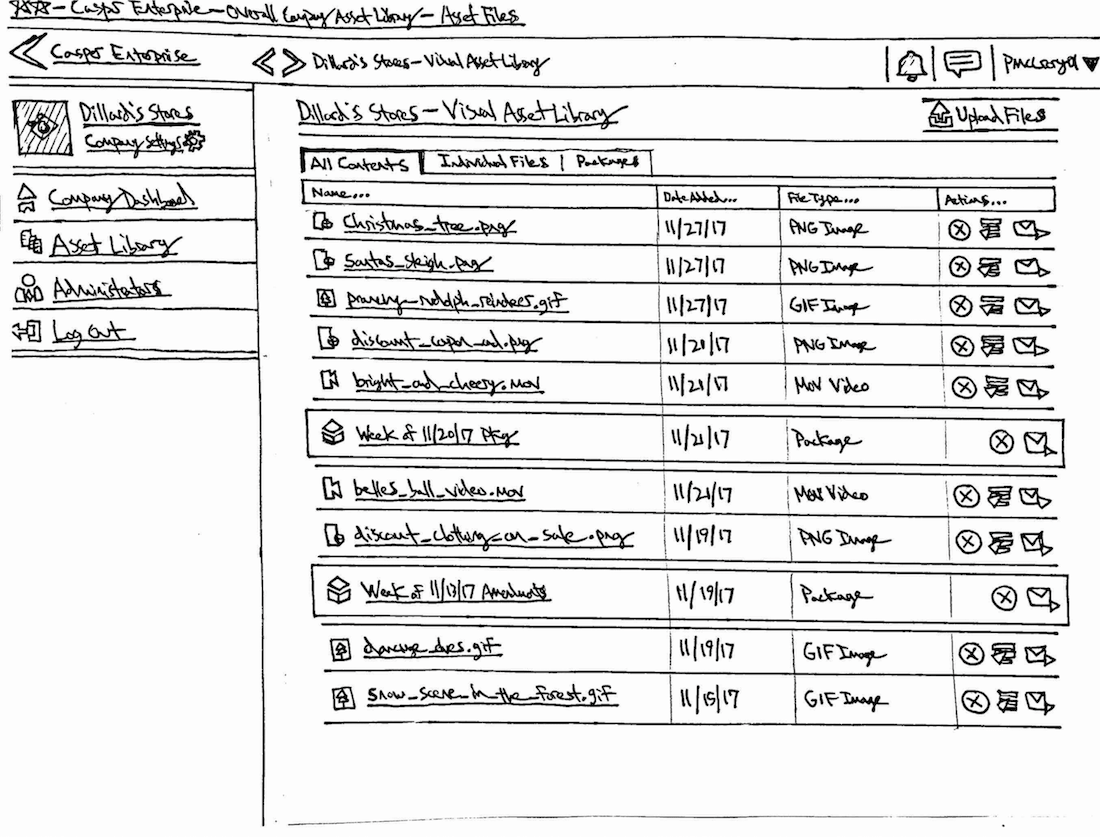 - Casper Enterprise - Overall Company Asset Library - Asset Files
Casper Enterprise
Dillard's Stores - Visual Asset Library
Dillard's Stores
Company Settings
Company Dashboard
Asset Library
Administrators
Log Out
Dillard's Stores - Visual Asset Library
Upload Files
All Contents | Individual Files | Packages
Name... Date Added... File Type... Actions...
Christmas_tree.png 11/27/17 PNG Image
santas_sleigh.png 11/27/17 PNG Image
prancing_rudolph_reindeer.gif 11/27/17 GIF Image
discount_coupon_ad.png 11/21/17 PNG Image
bright_and_cheery.mov 11/21/17 MOV Video
Week of 11/20/17 Pkg 11/21/17 Package
belles_ball_video.mov 11/21/17 MOV Video
discount_clothing_on_sale.png 11/19/17 PNG Image
Week of 11/13/17 11/19/17 Package
.gif 11/19/17 GIF Image
Snow_scene_in_the_forest.gif 11/15/17 GIF Image